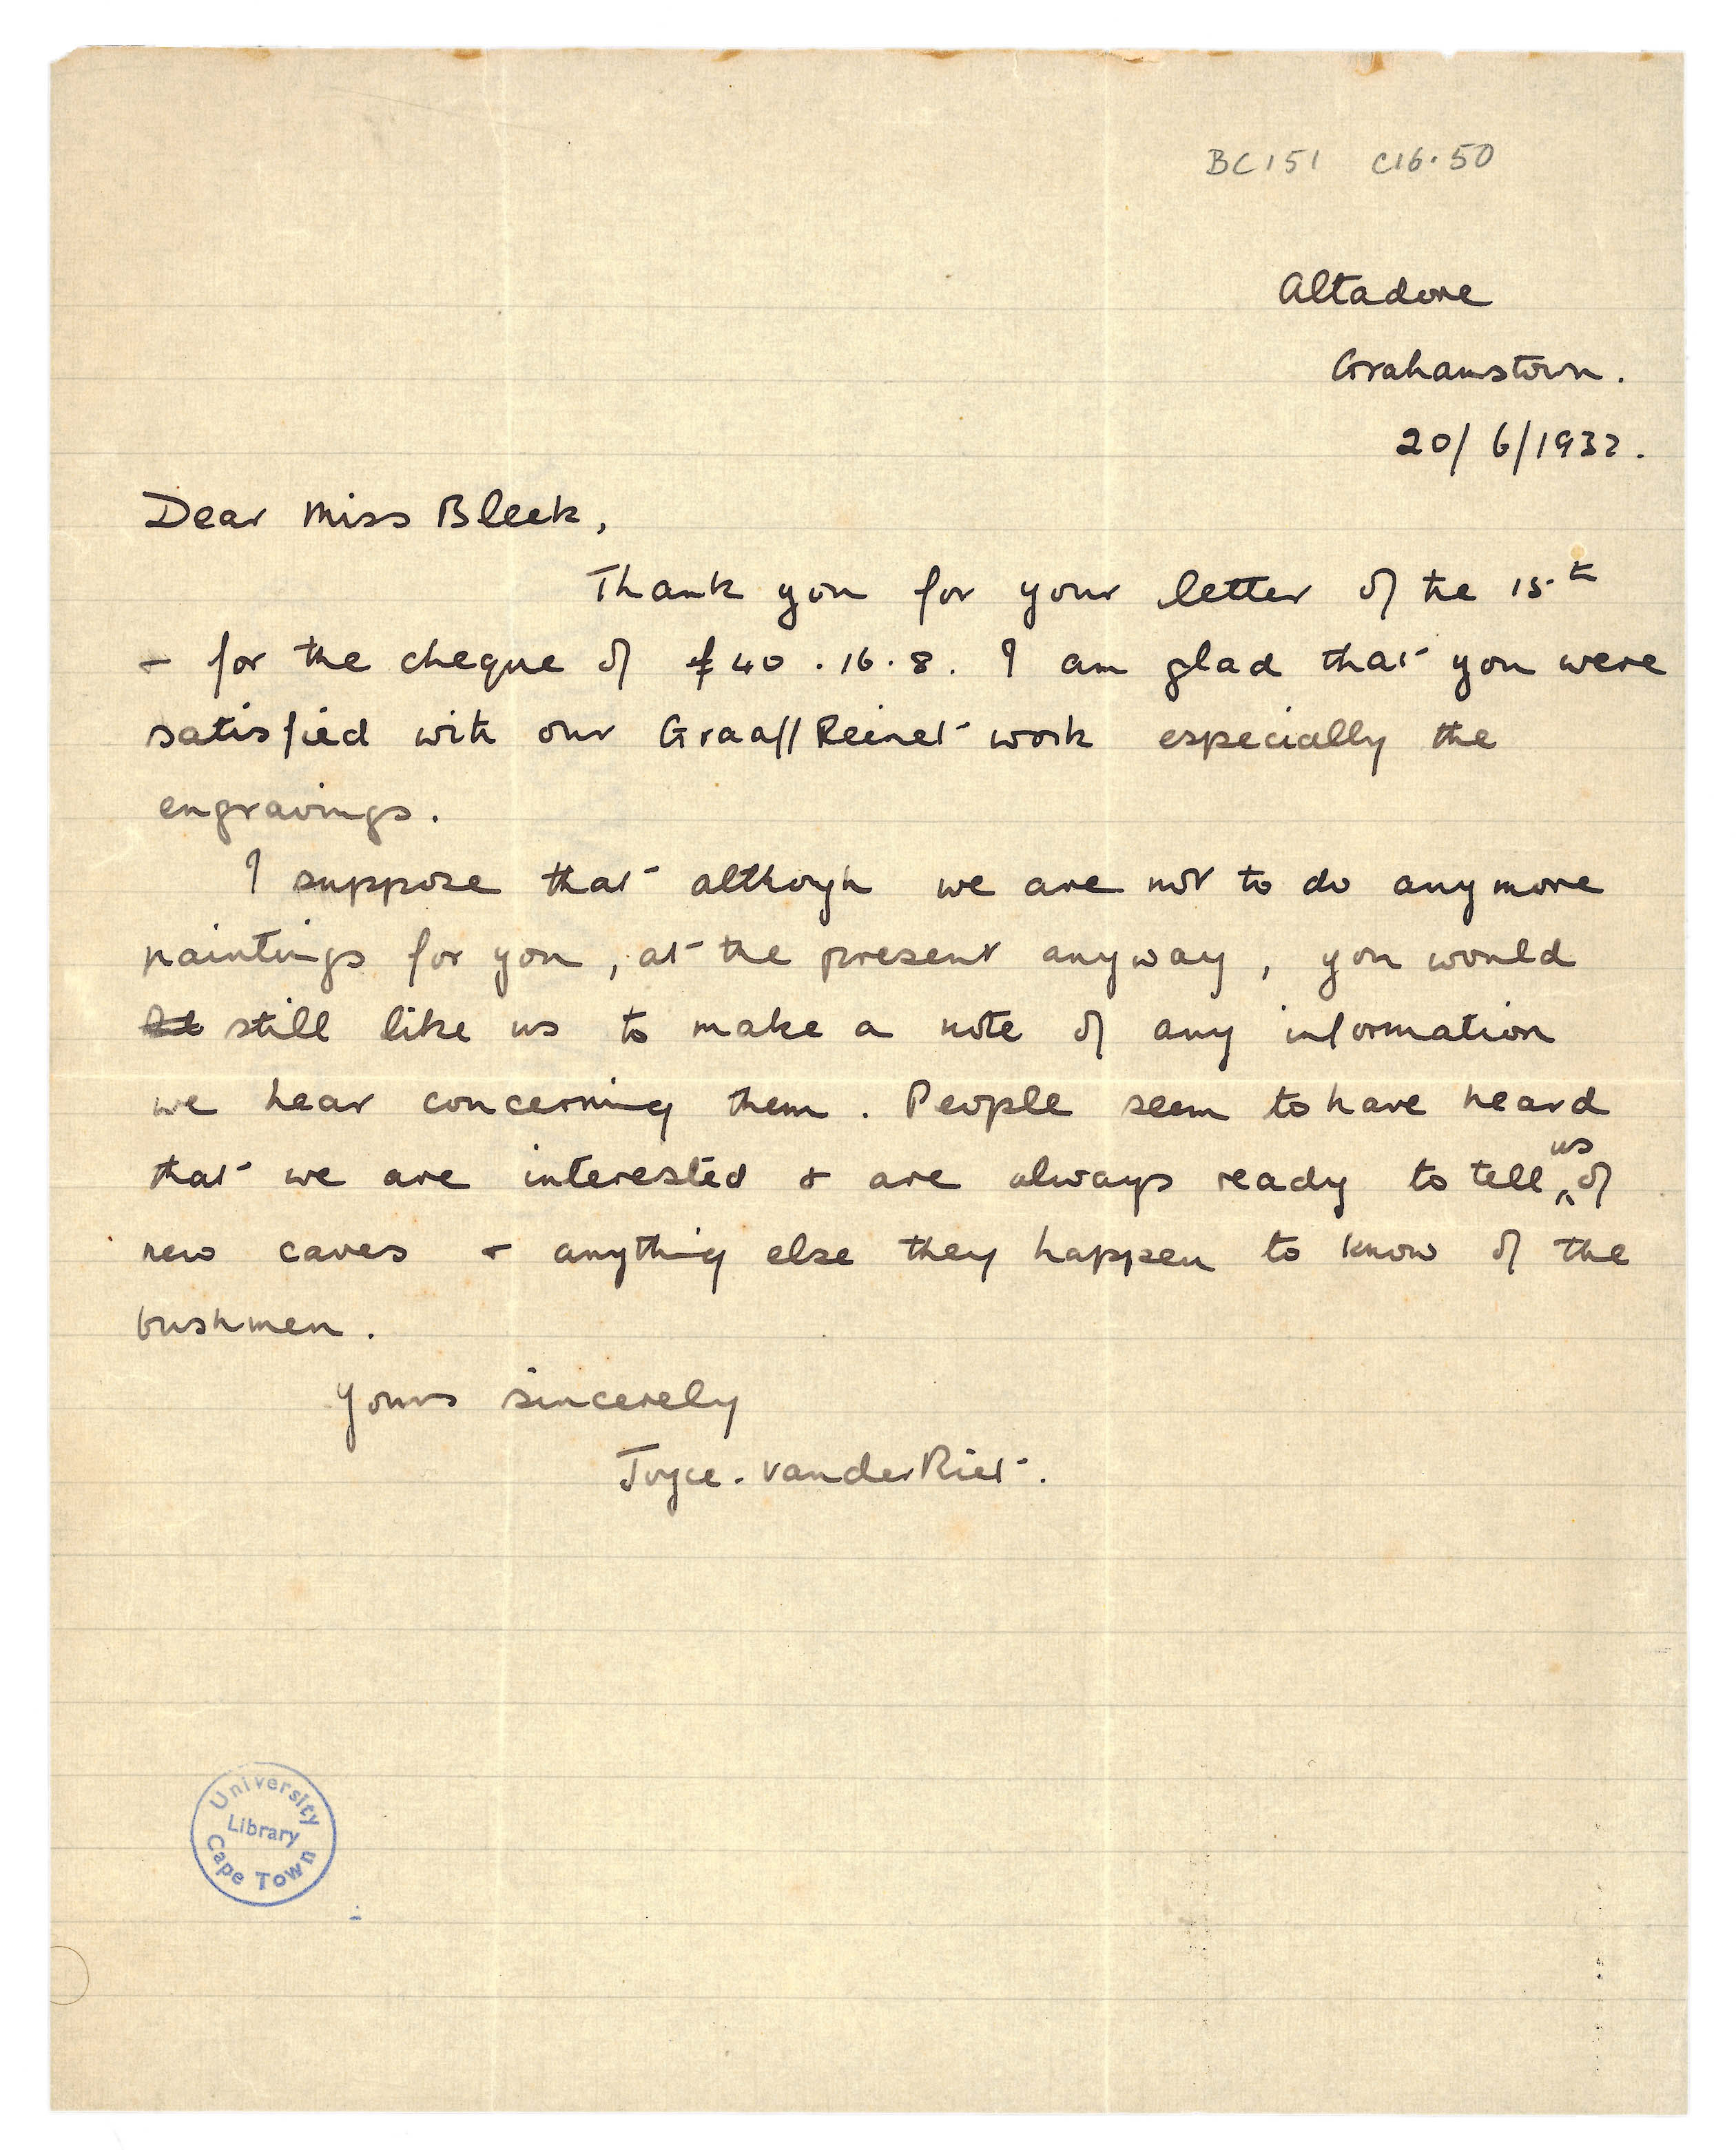 BC151 C16.50
Altadore
Grahamstown.
20/6/1932.
Dear Miss Bleek,
Thank you for your letter of the 15th
& for the cheque of £40.16.8. I am glad that you were
satisfied with our Graaff Reinet work especially the
engravings.
I suppose that although we are not to do anymore
paintings for you, at the present anyway, you would
still like us to make a note of any information
we hear concerning them. People seem to have heard
that we are interested & are always ready to tell us of
new caves & anything else they happen to know of the
bushmen.
Yours sincerely
Joyce. van der Riet.
University
Library
Cape Town